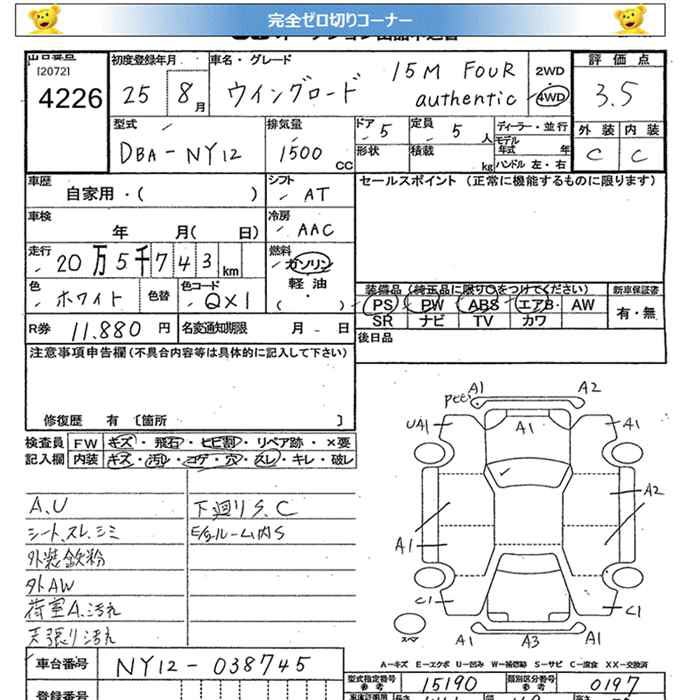 完全ゼロ切りコーナー
[2072]
4226
初度登録年月 車名・グレード 評価点
25 8月 ウイングロード 15M FOUR authentic 2WD 4WD 3.5
型式 排気量 ドア 定員 ディーラー・並行 外装 内装
DBA-NY12 1500cc 5 5人 モデル年式 年 C C
形状 積載 kg ハンドル 左・右
車歴 シフト セールスポイント (正常に機能するものに限ります)
自家用・( ) AT
車検 冷房
年 月( 日) AAC
走行 燃料
20万5千743km ガソリン
軽油
( )
色 色替 色コード
ホワイト QX1
装備品 (純正品に限り○をつけてください) 新車保証書
PS PW ABS エアB AW 有・無
SR ナビ TV カワ
R券 11,880円 名変通知期限 月 日 後日品
注意事項申告欄(不具合内容等は具体的に記入して下さい)
修復歴 有 〔箇所 〕
検査員 FW キズ・飛石・ヒビ割・リペア跡・×要
記入欄 内装 キズ・汚レ・コゲ・穴・スレ・キレ・破レ
A.U 下廻りS.C
シート、スレ、シミ E/gルーム内S
外装鉄粉
外AW
荷室A.汚れ
天張り汚れ
A1 A2
UA1 A1 A1
A2
A1
C1 C1
スペア A1 A3 A1
A-キズ E-エクボ U-凹み W-補修跡 S-サビ C-腐食 XX-交換済
車台番号 NY12-038745
型式指定番号 参考 15190 類別区分番号 参考 0197
登録番号